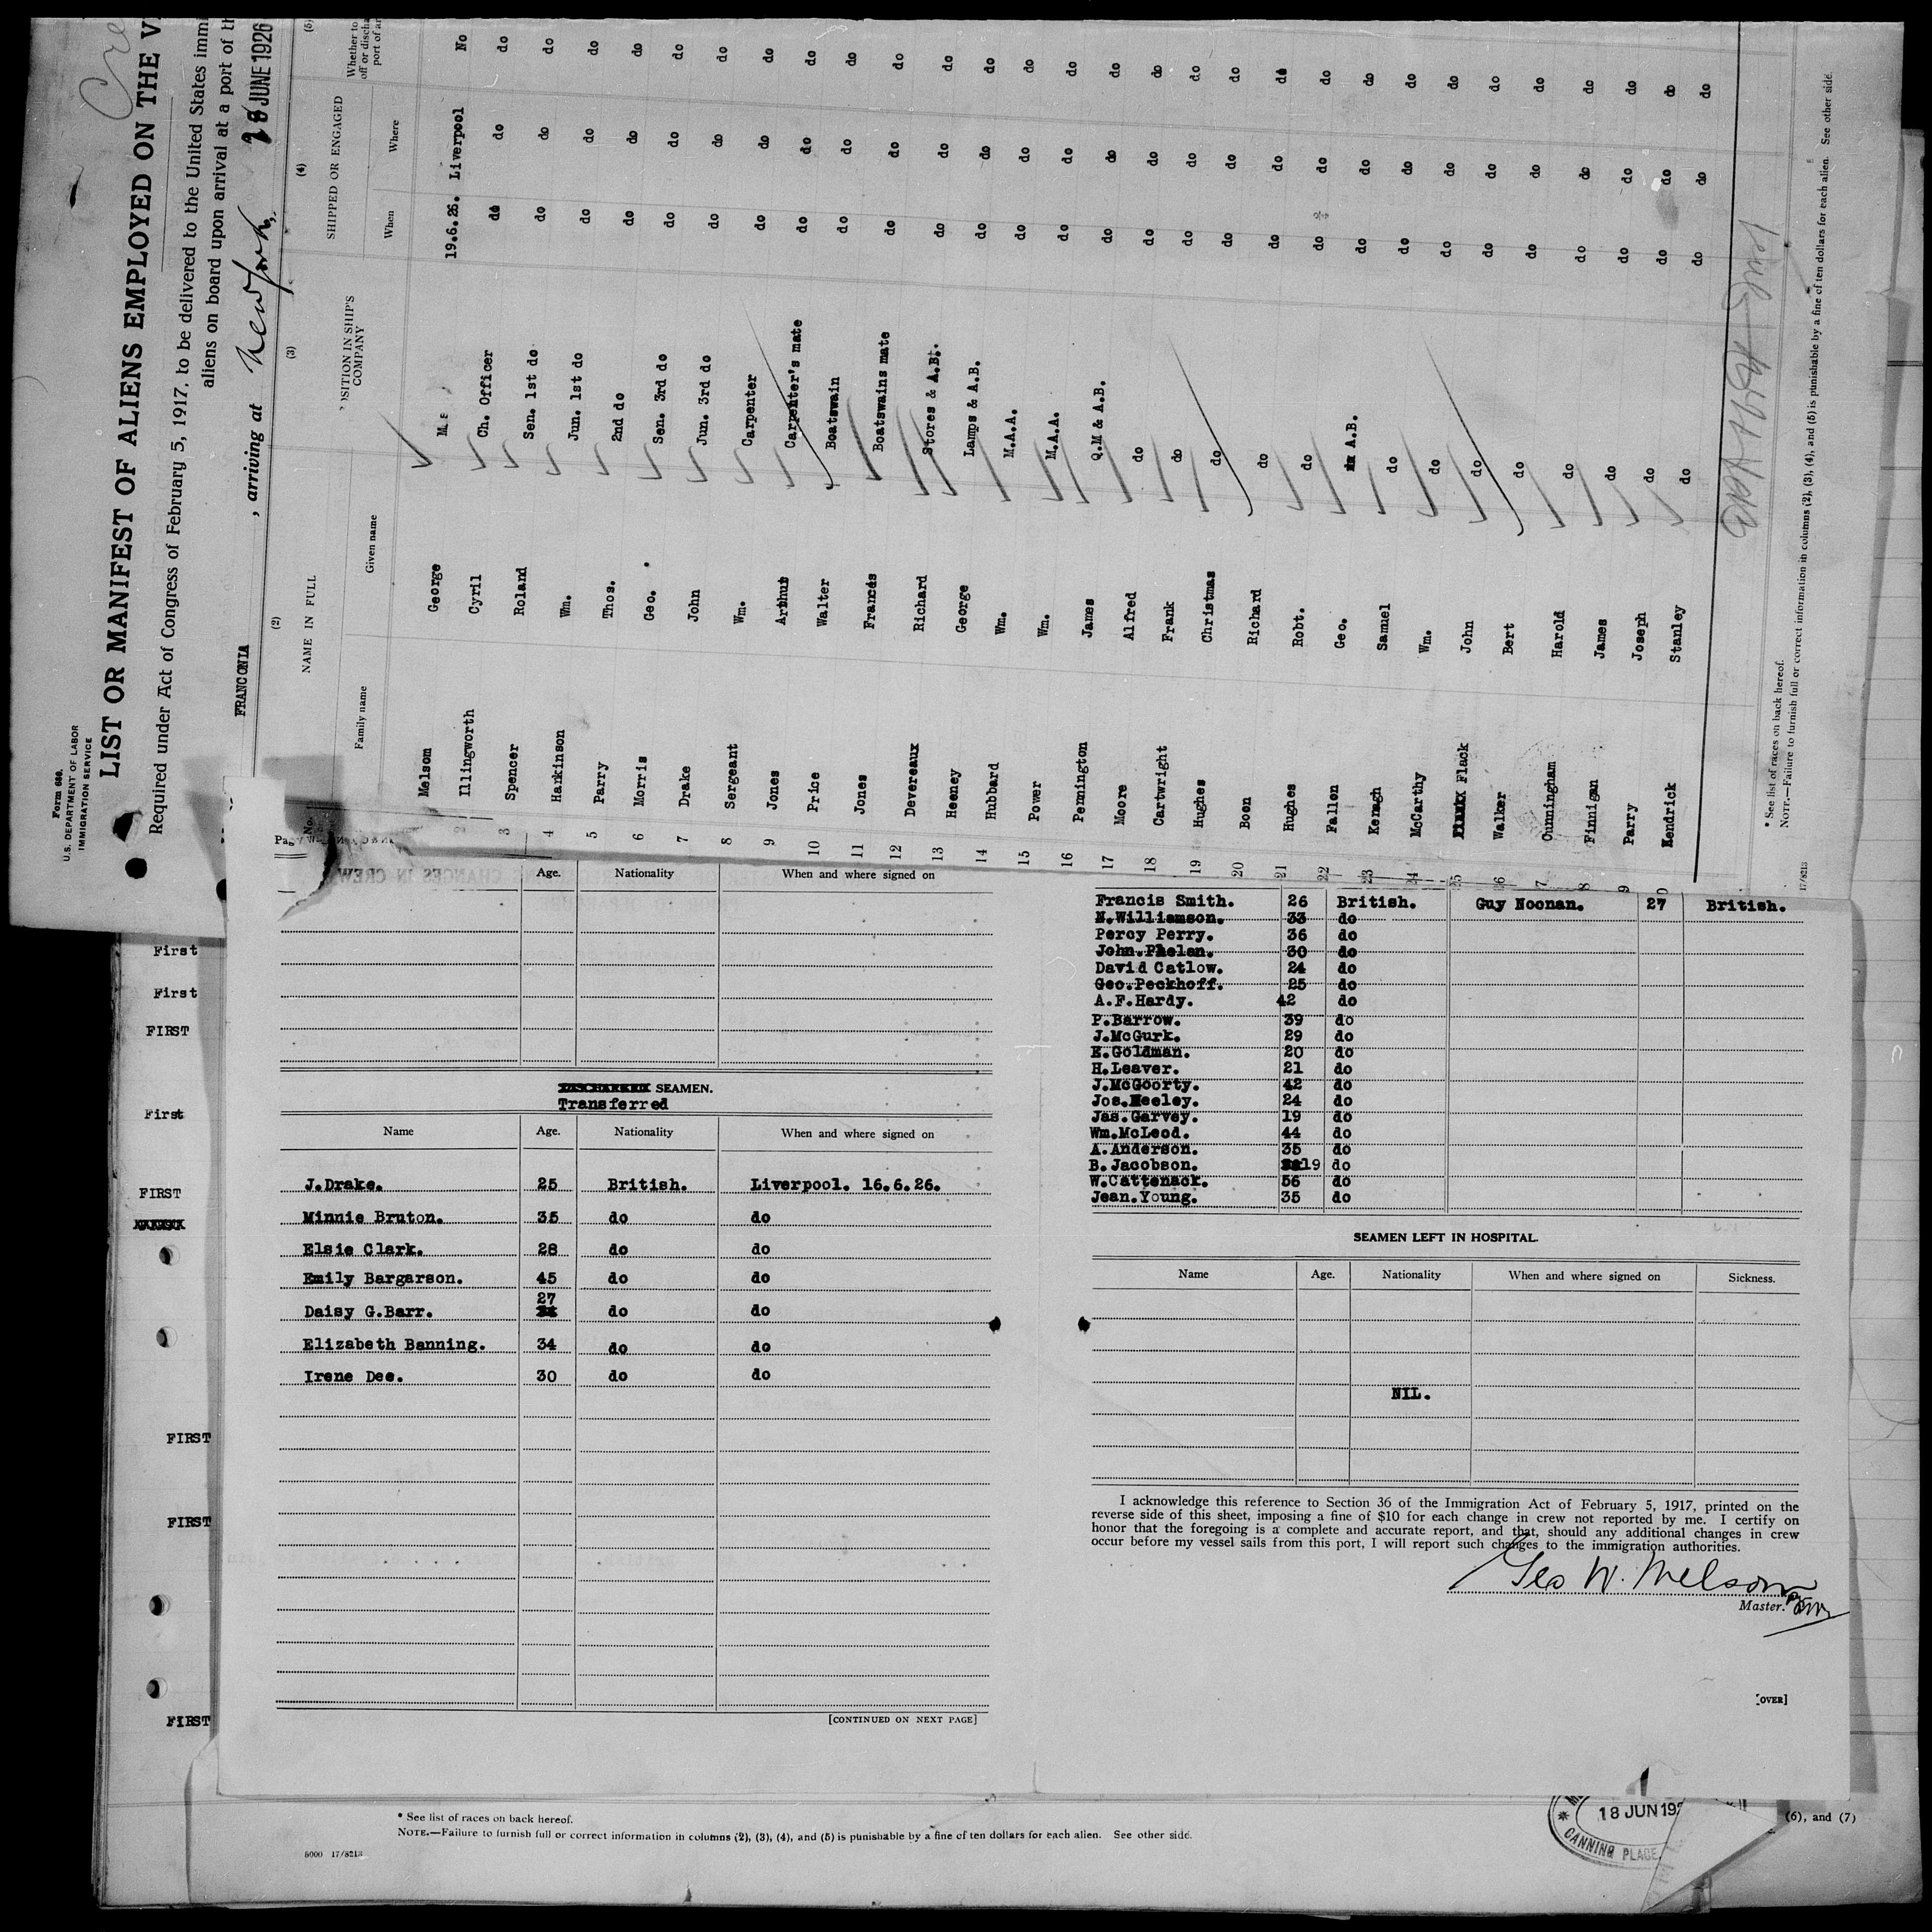 Form 680.
U. S. DEPARTMENT OF LABOR
IMMIGRATION SERVICE
LIST OR MANIFEST OF ALIENS EMPLOYED ON THE
Required under Act of Congress of February 5, 1917, to be delivered to the United States
aliens on board upon arrival at a port of
FRANCONIA , arriving at New York, JUNE 1926
(2) (3) (4) (5)
NAME IN FULL SHIPPED OR ENGAGED
COMPANY
Family name Given name When Where
Melsom George 19.6.26. Liverpool No
2 Illingworth Cyril Ch. Officer do do do
3 Spencer Roland Sen. 1st do do do do
4 Harkinson Wm. Jun. 1st do do do do
5 Parry Thos. 2nd do do do do
6 Morris Geo. Sen. 3rd do do do do
7 Drake John Jun. 3rd do do do do
8 Sergeant Wm. Carpenter do do do
9 Jones Arthur Carpenter's mate do do do
10 Price Walter Boatswain do do do
11 Jones Francis Boatswains mate do do do
12 Devereaux Richard Stores & A.B. do do do
13 Heeney George Lamps & A.B. do do do
14 Hubbard Wm. M.A.A. do do do
15 Power Wm. M.A.A. do do do
16 Pennington James Q.M & A.B. do do do
17 Moore Alfred do do do do
18 Cartwright Frank do do do do
19 Hughes Christmas do do do do
20 Boon Richard do do do do
21 Hughes Robt. do do do do
22 Fallen Geo. A.B. do do do
23 Keragh Samuel do do do do
24 McCarthy Wm. do do do do
25 Flack John do do do do
26 Walker Bert do do do do
7 Cunningham Harold do do do do
8 Finnigan James do do do do
9 Parry Joseph do do do do
0 Kendrick Stanley do do do do
* See list of races on back hereof.
NOTE.—Failure to furnish full or correct information in columns (2), (3), (4), and (5) is punishable by a fine of ten dollars for each alien. See other side.
17/8213
First
First
FIRST
First
FIRST
FIRST
FIRST
FIRST
Age. Nationality When and where signed on
SEAMEN.
Transferred
Name Age. Nationality When and where signed on
J.Drake. 25 British. Liverpool. 16.6.26.
Minnie Bruton. 35 do do
Elsie Clark. 28 do do
Emily Bargarson. 45 do do
27
Daisy G.Barr. do do
Elizabeth Banning. 34 do do
Irene Dee. 30 do do
[CONTINUED ON NEXT PAGE]
Francis Smith. 26 British. Guy Noonan. 27 British.
N.Williamson. 33 do
Percy Perry. 36 do
John.Phelan. 30 do
David Catlow. 24 do
Geo.Peckhoff. 25 do
A.F.Hardy. 42 do
P.Barrow. 39 do
J.McGurk. 29 do
E.Goldman. 20 do
H.Leaver. 21 do
J.McGoorty. 42 do
Jos.Neeley. 24 do
Jas.Garvey. 19 do
Wm.McLeod. 44 do
A.Anderson. 35 do
B.Jacobson. 19 do
W.Cattenack. 56 do
Jean.Young. 35 do
SEAMEN LEFT IN HOSPITAL.
Name Age. Nationality When and where signed on Sickness.
NIL.
I acknowledge this reference to Section 36 of the Immigration Act of February 5, 1917, printed on the
reverse side of this sheet, imposing a fine of $10 for each change in crew not reported by me. I certify on
honor that the foregoing is a complete and accurate report, and that, should any additional changes in crew
occur before my vessel sails from this port, I will report such changes to the immigration authorities.
Geo W. Melsom
Master.
[OVER]
* See list of races on back hereof.
NOTE.—Failure to furnish full or correct information in columns (2), (3), (4), and (5) is punishable by a fine of ten dollars for each alien. See other side.
5000 17/8213
18 JUN 192
CANNING PLACE
(6), and (7)